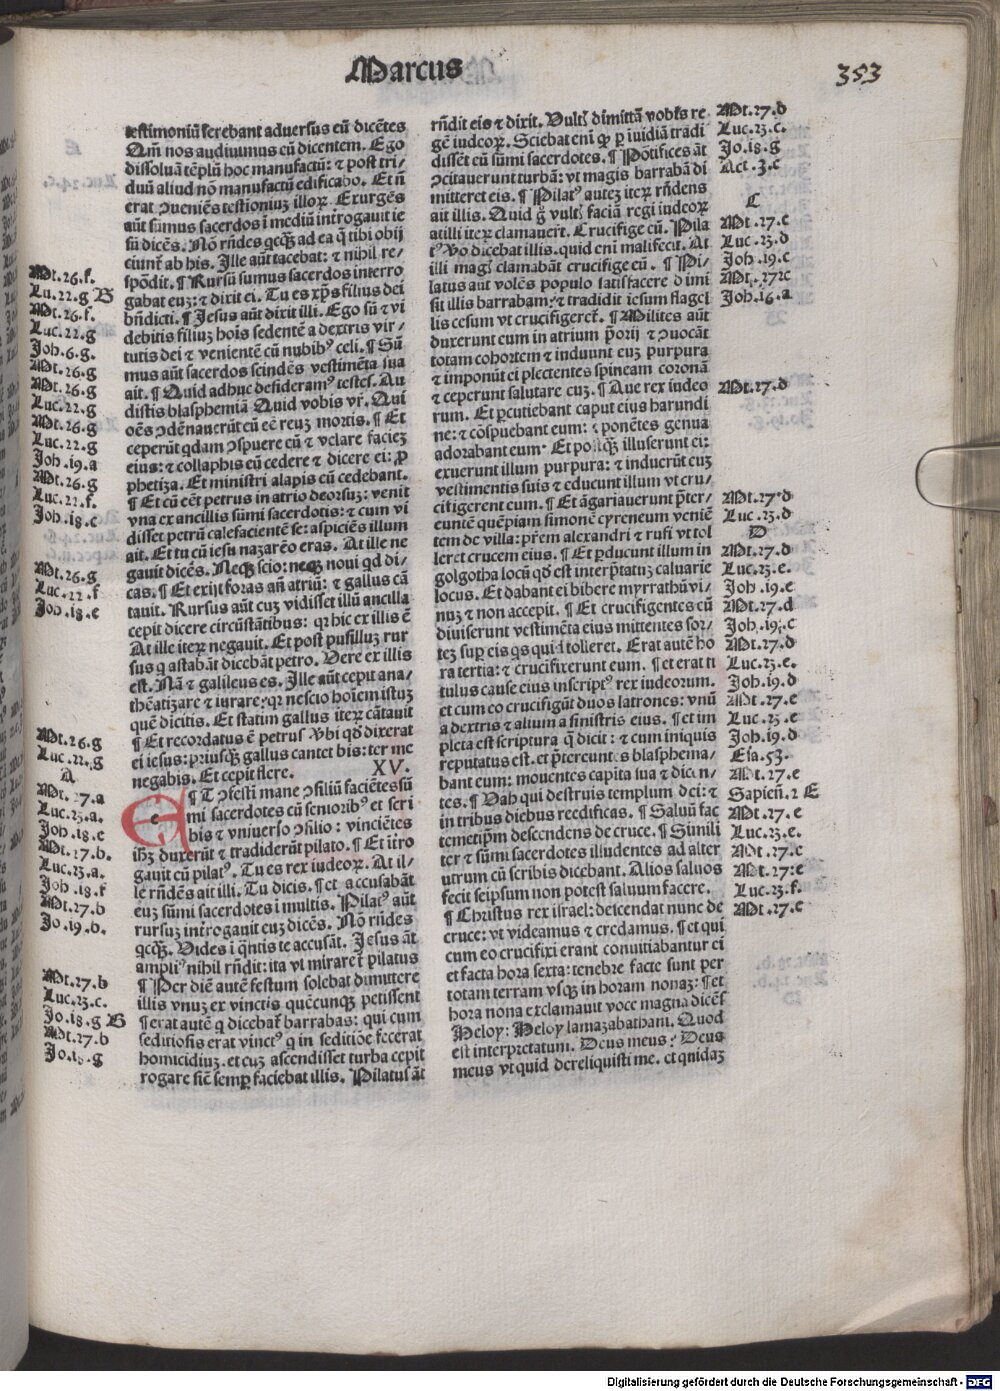 Marcus
353
testimoniū ferebant adversus eū dicētes
Qm̄ nos audiuimus eū dicentem. Ego
dissoluā tēplū hoc manufactū: ⁊ post tri/
duū aliud nō manufactū edificabo. Et ñ
erat ↄueniēs testioniuʒ illoꝝ. Exurgēs
aūt sumus sacerdos ī mediū introgauit ie
sū dicēs. Nō rñdes qcqꝫ ad ea q̄ tibi obij
ciunt̄ ab his. Ille aūt tacebat: ⁊ nihil re/
spōdit. ¶ Rursū sumus sacerdos interro
gabat euʒ: ⁊ dixit ei. Tu es xp̄s filius dei
bñdicti. ¶ Jesus aūt dixit illi. Ego sū ⁊ vi
debitis filiuʒ hois sedentē a dextris vir/
tutis dei ⁊ venientē cū nubibꝰ celi. ¶ Sū
mus aūt sacerdos scindēs vestimēta sua
ait. ¶ Quid adhuc desideramꝰ testes. Au
distis blasphemiā Quid vobis vr̄. Qui
oēs ↄdēnauerūt eū eē reuʒ mortis. ¶ Et
ceperūt qdam ↄspuere eū ⁊ velare facieʒ
eius: ⁊ collaphis eū cedere ⁊ dicere ei: ꝓ
phetiza. Et ministri alapis eū cedebant.
¶ Et cū cēt petrus in atrio deorsuʒ: venit
vna ex ancillis sūmi sacerdotis: ⁊ cum vi
disset petrū calefacientē se: aspiciēs illum
ait. Et tu cū iesu nazarēo eras. At ille ne
gauit dicēs. Neqꝫ scio: neqꝫ noui qd di/
cas. ¶ Et exijt foras añ atriū: ⁊ gallus cā
tauit. Rursus aūt cuʒ vidisset illū ancilla
cepit dicere circūstātibus: qꝛ hic ex illis ē
At ille iteꝝ negauit. Et post pusilluʒ rur
sus q astabāt dicebāt petro. Vere ex illis
est. Nā ⁊ galileus es. Ille aūt cepit ana/
thēatizare ⁊ iurare: qꝛ nescio hoīem istuʒ
quē dicitis. Et statim gallus iteꝝ cātauit
¶ Et recordatus ē petrus ꝟbi qd dixerat
ei iesus: priusqꝫ gallus cantet bis: ter me
negabis. Et cepit flere. XV.
e ¶ T ↄfestī mane ↄsiliū faciētes sū
mi sacerdotes cū senioribꝰ et scri
bis ⁊ vniuerso ↄsilio: vinciētes
ihʒ duxerūt ⁊ tradiderūt pilato. ¶ Et ītro
gauit eū pilatꝰ. Tu es rex iudeoꝝ. At il/
le rñdēs ait illi. Tu dicis. ¶ et accusabāt
euʒ sūmi sacerdotes ī multis. Pilatꝰ aūt
rursuʒ introgauit euʒ dicēs. Nō rñdes
qcqꝫ. Vides ī q̄ntis te accusāt. Jesus āt
ampliꝰ nihil rñdit: ita vt mirareť pilatus
¶ Per diē autē festum solebat dimittere
illis vnuʒ ex vinctis quēcunqꝫ petissent
¶ erat autē q dicebať barrabas: qui cum
seditiosis erat vinctꝰ q in seditiōe fecerat
homicidiuʒ. et cuʒ ascendisset turba cepit
rogare siē semꝑ faciebat illis. Pilatus āt
rñdit eis ⁊ dixit. Vultꝭ dimittā vobis re
gē iudeoꝝ. Sciebat eni ꝙ ꝑ iuidiā tradi
dissēt eū sūmi sacerdotes. ¶ Pōtifices āt
ↄcitauerunt turbā: vt magis barrabā di
mitteret eis. ¶ Pilatꝰ auteʒ iteꝝ rñdens
ait illis. Quid ḡ vultꝭ faciā regi iudeoꝝ
at illi iteꝝ clamauerūt. Crucifige eū. Pila
tꝰ ꝟo dicebat illis. quid eni mali fecit. At
illi magꝭ clamabāt crucifige eū. ¶ Pi/
latus aūt volēs populo satisfacere dimi
sit illis barrabam: ⁊ tradidit iesum flagel
lis cesum vt crucifigereť. ¶ Milites aūt
duxerunt eum in atrium p̄torij ⁊ ↄuocāt
totam cohortem ⁊ induunt euʒ purpura
⁊ imponūt ei plectentes spineam coronā
⁊ ceperunt salutare euʒ. ¶ Aue rex iudeo
rum. Et ꝑcutiebant caput eius harundi
ne: ⁊ cōspuebant eum: ⁊ ponētes genua
adorabant eum. Et postqꝫ illuserunt ei:
exuerunt illum purpura: ⁊ induerūt euʒ
vestimentis suis ⁊ educunt illum vt cru/
cifigerent eum. ¶ Et āgariauerunt p̄ter/
euntē quēpiam simonē cyreneum veniē
tem de villa: prēm alexandri ⁊ rufi vt tol
leret crucem eius. ¶ Et ꝑducunt illum in
golgotha locū qd est interp̄tatuʒ caluarie
locus. Et dabant ei bibere myrrathū vi/
nuʒ ⁊ non accepit. ¶ Et crucifigentes eū
diuiserunt vestimēta eius mittentes sor/
teʒ suꝑ eis qs qui d tolleret. Erat autē ho
ra tertia: ⁊ crucifixerunt eum. ¶ et erat ti
tulus cause eius inscriptꝰ rex iudeorum.
et cum eo crucifigūt duos latrones: vnū
a dextris ⁊ alium a sinistris eius. ¶ et im
pleta est scriptura q̄ dicit: ⁊ cum iniquis
reputatus est. et p̄tereuntes blasphema/
bant eum: mouentes capita sua ⁊ dicen/
tes. ¶ Vah qui destruis templum dei: ⁊
in tribus diebus reedificas. ¶ Saluū fac
temetip̄m descendens de cruce. ¶ Simili
ter ⁊ sūmi sacerdotes illudentes ad alter
utrum cū scribis dicebant. Alios saluos
fecit seipsum non potest saluum facere.
¶ Christus rex israel: descendat nunc de
cruce: vt videamus ⁊ credamus. ¶ et qui
cum eo crucifixi erant conuitiabantur ei
et facta hora sexta: tenebre facte sunt per
totam terram vsqꝫ in horam nonaʒ: ¶ et
hora nona exclamauit voce magna dicēs
Heloy: Heloy lamazabathani. Quod
est interpretatum. Deus meus: Deus
meus vt quid dereliquisti me. et quidaʒ
Mt.26.f.
Lu.22.g B
Mt.26.f.
Luc.22.g
Joh.6.g.
Mt.26.g
Mt.26.g
Luc.22.g
Mt.26.g
Luc.22.g
Joh.19.a
Mt.26.g
Luc.22.f.
Joh.18.e
Mt.26.g
Luc.22.f
Joh.18.e
Mt.26.g
Luc.22.g
A
Mt.27.a
Luc.23.a.
Joh.18.e
Mt.27.b.
Luc.23.a.
Joh.18.f
Mt.27.b
Jo.19.b.
Mt.27.b
Luc.23.c.
Jo.18.g B
Mt.27.b
Jo.18.g
Mt.27.d
Luc.23.c.
Jo.18.g
Act.3.c
C
Mt.27.c
Luc.23.d
Joh.19.c
Mt.27.c
Joh.16.a
Mt.27.d
Mt.27.d
Luc.23.d
D
Mt.27.d
Luc.23.e.
Joh.19.e
Mt.27.d
Joh.19.c
Mt.27.d
Luc.23.e.
Joh.19.d
Mt.27.e
Luc.23.e
Joh.19.d
Esa.53.
Mt.27.e
Sapien̄.2 E
Mt.27.e
Luc.23.e.
Mt.27.e
Mt.27.e
Luc.23.f.
Mt.27.e
Digitalisierung gefördert durch die Deutsche Forschungsgemeinschaft - DFG